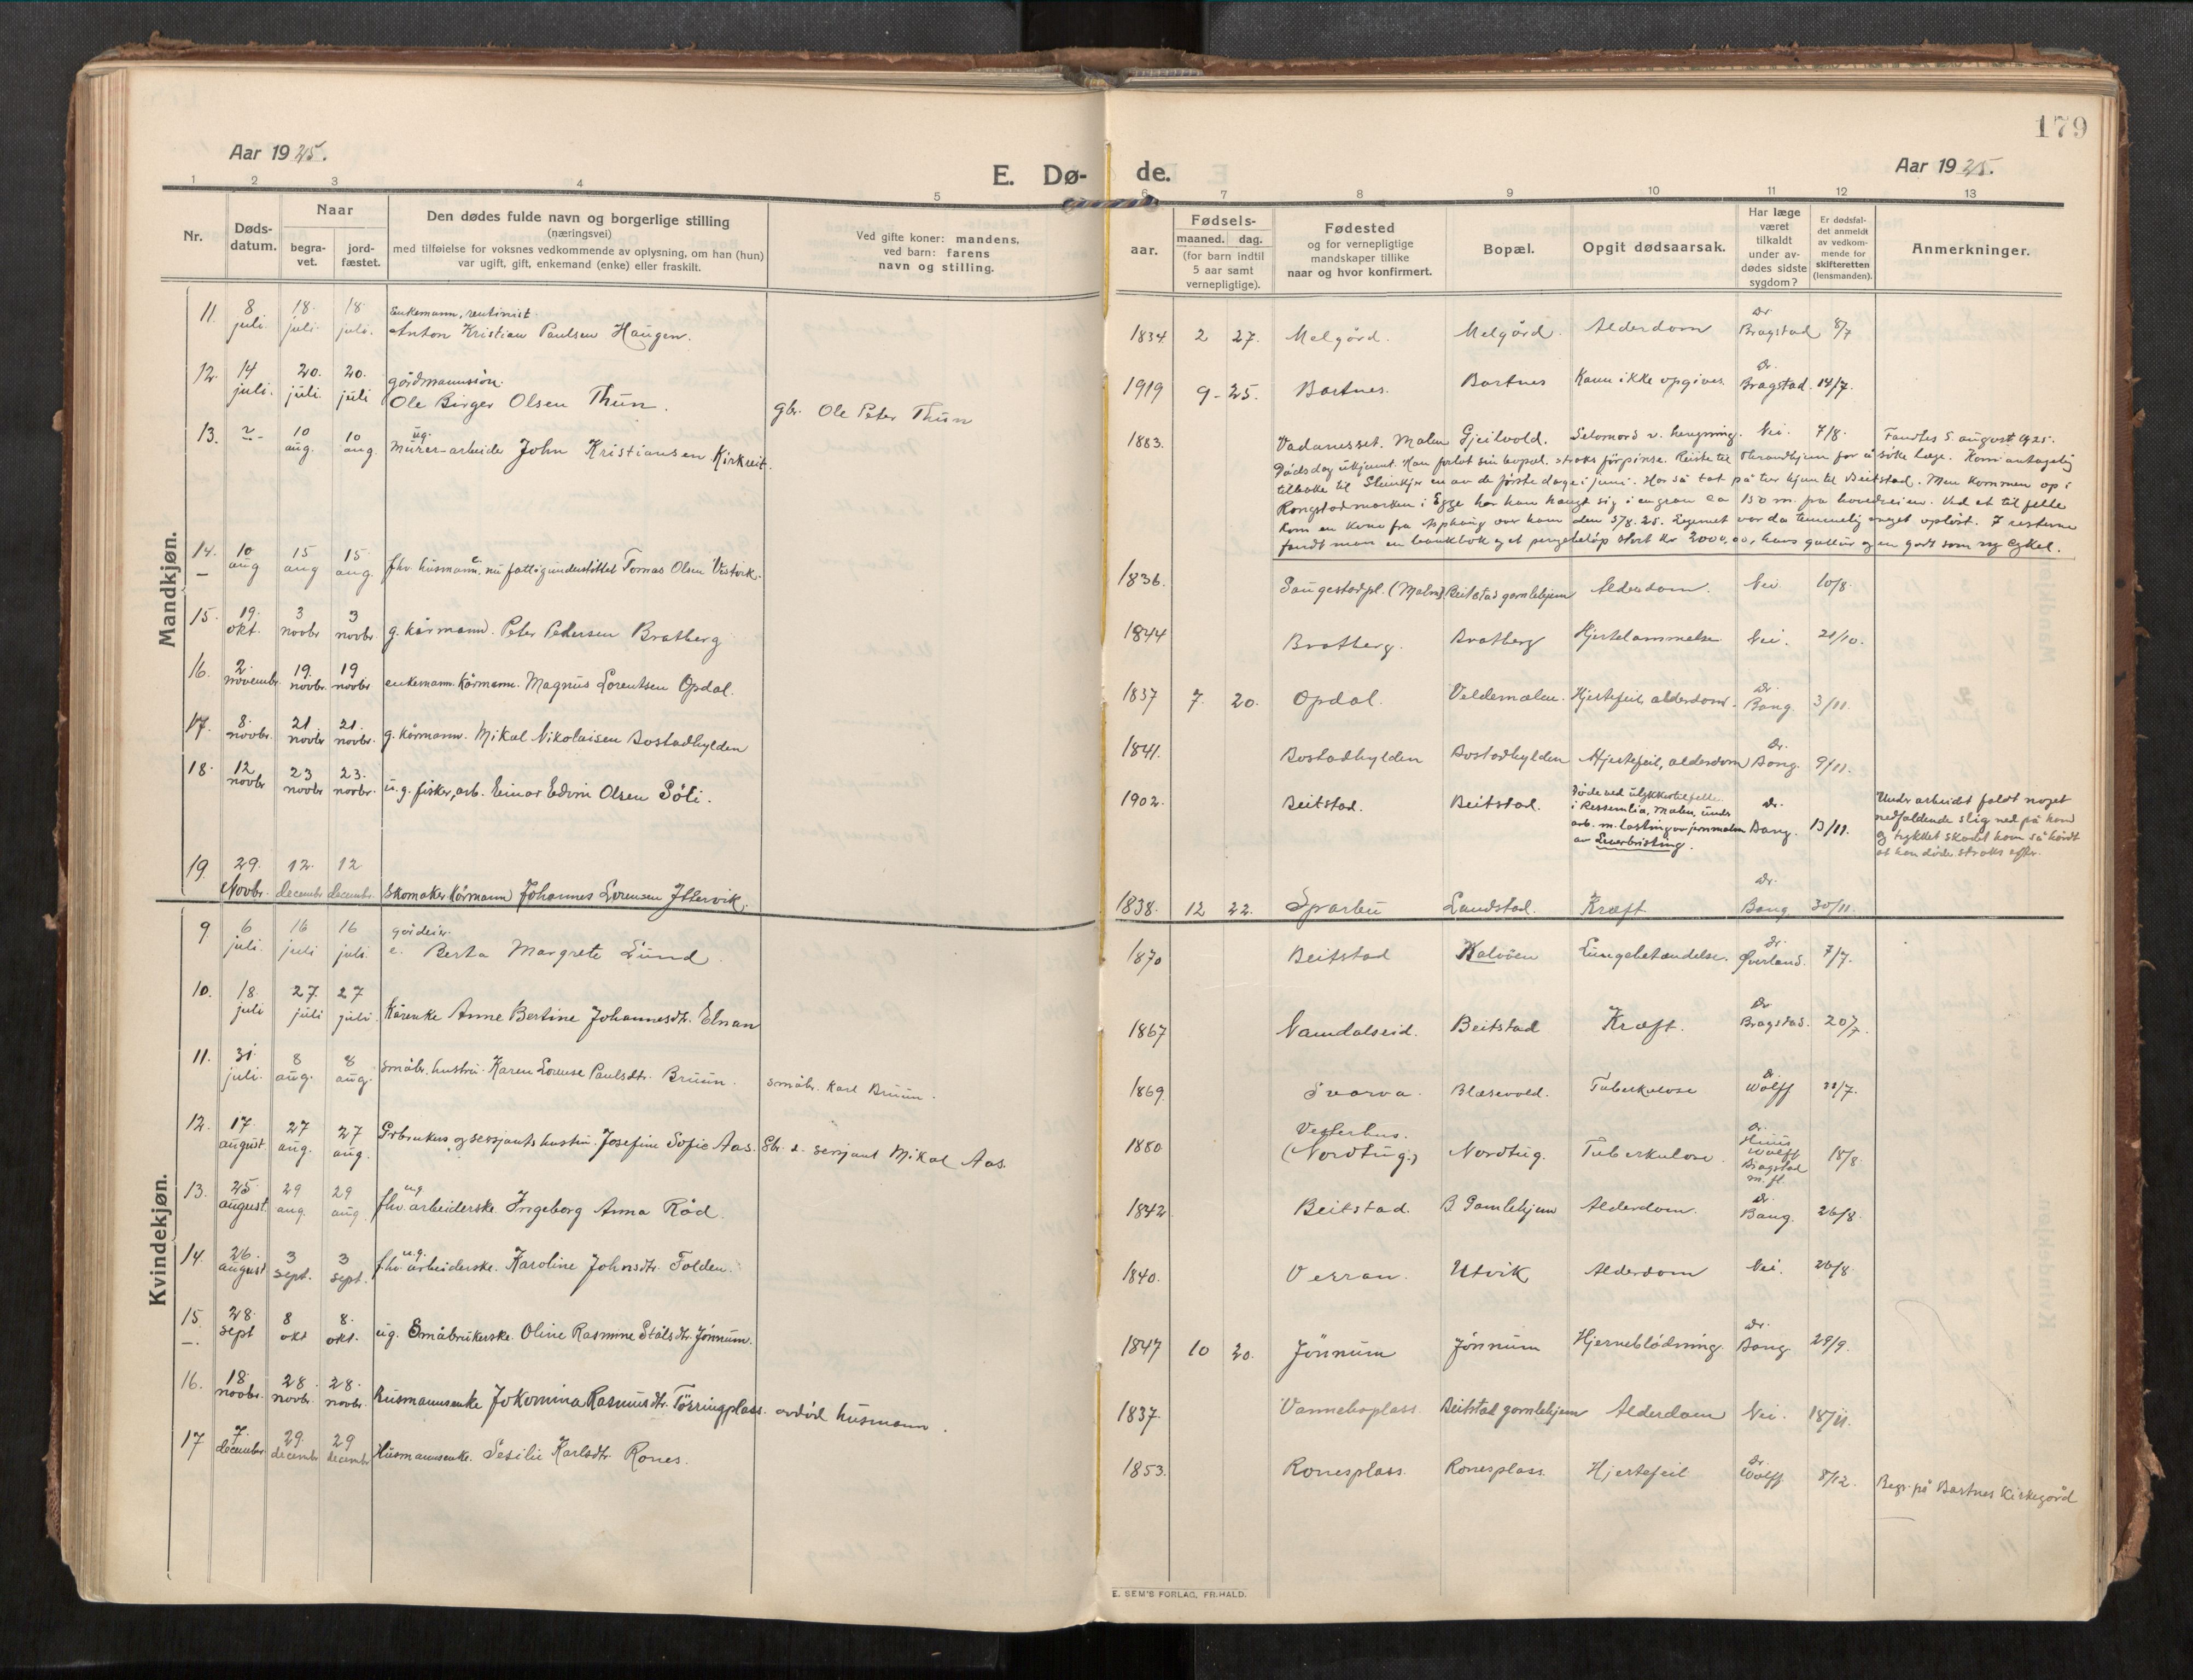 179
Aar 1925.
E. Dø-
de.
Aar 1925.
1 2 3 4 5 6 7 8 9 10 11 12 13
Nr.
Døds-
datum.
Naar
begra-
vet.
jord-
fæstet.
Den dødes fulde navn og borgerlige stilling
(næringsvei)
med tilføielse for voksnes vedkommende av oplysning, om han (hun)
var ugift, gift, enkemand (enke) eller fraskilt.
Ved gifte koner: mandens,
ved barn: farens
navn og stilling.
Fødsels-
aar.
maaned. dag.
(for barn indtil
5 aar samt
vernepligtige).
Fødested
og for vernepligtige
mandskaper tillike
naar og hvor konfirmert.
Bopæl.
Opgit dødsaarsak.
Har læge
været
tilkaldt
under av-
dødes sidste
sygdom?
Er dødsfal-
det anmeldt
av vedkom-
mende for
skifteretten
(lensmanden).
Anmerkninger.
Mandkjøn.
11. 8 juli. 18. juli. 18 juli. Enkemann, rentinist.
Anton Kristian Paulsen Haugen. 1834 2 27. Melgård. Melgård. Alderdom Dr. Bragstad 8/7
12. 14 juli. 20. juli. 20. juli gårdmannssön.
Ole Birger Olsen Thun. gbr. Ole Peter Thun 1919 9 - 25. Bartnes. Bartnes Kann ikke opgives. Dr. Bragstad. 14/7.
13. ? - 10 aug. 10 aug. ug. Murer-arbeide John Kristiansen Kirkreit. 1883. Vadanesset. Malm Gjeilvold. Selvmord v. hengning. Nei. 7/8. Fandtes 5. august 1925.
Dödsdag ukjent. Han forlot sin bopæl straks för pinse. Reiste til Thrandhjem for å söke læge. Kom antagelig
tilbake til Steinkjer en av de förste dage i juni. Har så tat på tur hjem til Beitstad. Men kommen op i
Rongstadmarken i Egge har han hængt sig i en gran ca 150 m. fra hovedveien. Ved et tilfelle
kom en kone fra Asphaug over ham den 5/8. 25. Legemet var da temmelig meget oplöst. I resterne
fandt man en bankbok og et pengebelöp stort kr 2000,00, hans gullur og en godt som ny cykel.
14. — 10 aug 15 aug 15 aug. fhv. husmann. nu fattigunderstöttet Tomas Olsen Vestvik. 1836. Saugestadpl. (Malm). Beitstad gamlehjem Alderdom. Nei 10/8.
15. 19. okt. 3 novbr 3 novbr. g. kårmann. Peter Pedersen Bratberg 1844 Bratberg. Bratberg Hjertelammelse Nei. 21/10.
16. 2. novembr. 19. novbr. 19 novbr enkemann. Kårmann. Magnus Lorentsen Opdal. 1837 7. 20. Opdal. Veldemælen. Hjertefeil, alderdom. Dr. Bang. 3/11.
17. 8. novbr. 21 novbr 21. novbr. g. kårmann. Mikal Nikolaisen Bostadhylden 1841. Bostadhylden Bostadhylden Hjertefeil, alderdom Dr. Bang. 9/11.
18. 12 novbr 23 novbr 23. novbr. u.g. fisker, arb. Einar Edvin Olsen Söli. 1902. Beitstad. Beitstad. Döde ved ulykkestilfelle
i Ressemlia, Malm, under
arb. m. lasting av jernmalm
av Leverbristing. Dr. Bang. 13/11. Under arbeidet faldt noget
nedfaldende slig ned på ham
og trykket skadet ham så hårdt
at han döde straks efter.
19. 29. Novbr. 12. decembr 12 decembr. Skomaker kårmann Johannes Lorensen Yttervik. 1838. 12 22. Sparbu Landstad. Kræft Dr. Bang 30/11.
Kvindekjøn.
9 6 juli. 16 juli 16 juli. gårdeier.
e. Berta Margrete Lund. 1870 Beitstad Kalvöen Lungebetændelse. Dr. Øverland. 7/7.
10. 18. juli 27. juli 27 juli. Kårenke Anne Bertine Johannesdtr. Elnan 1867 Namdalseid. Beitstad Kræft. Dr. Bragstad. 20/7.
11. 31. juli. 8 aug. 8 aug. småbr. hustru. Karen Lorense Paulsdtr. Bruun. småbr. Karl Bruun. 1869. Svarva. Blæsevold. Tuberkulose Dr. Wolff 31/7.
12. 17. august. 27 aug. 27 aug. Grbrukers og sersjants hustru. Josefine Sofie Aas. Gbr. & sersjant Mikal Aas. 1880 Vesterhus.
(Nordtug.) Nordtug. Tuberkulose. Dr. Huus Wolff Bragstad m. fl. 18/8.
13. 25. august. 29 aug. 29 aug. fhv. ug. arbeiderske. Ingeborg Anna Röd. 1842 Beitstad. B. Gamlehjem Alderdom. Dr. Bang. 26/8.
14. 26. august 3 sept. 3 sept. fhv. u.g. arbeiderske. Karoline Johnsdtr. Folden. 1840. Verran. Utvik Alderdom Nei. 26/8.
15 —. 28. sept 8 okt 8. okt. ug. Småbrukerske. Oline Rasmine Stålsdtr. Jönnum. 1847 10 20. Jönnum Jönnum Hjerneblödning. Dr. Bang 29/9.
16. 18. novbr. 28 novbr. 28. novbr. Husmannsenke Jokomina Rasmusdtr. Törringplass. avdöd husmann. 1837. Vanneboplass. Beitstad gamlehjem Alderdom Nei. 18/11.
17 7. december 29. decembr 29 decembr Husmannsenke. Sesilie Karlsdtr. Rones. 1853. Ronesplass. Ronesplass. Hjertefeil Dr. Wolff. 8/12. Begr. på Bartnes kirkegård
E. SEM'S FORLAG, FR.HALD.